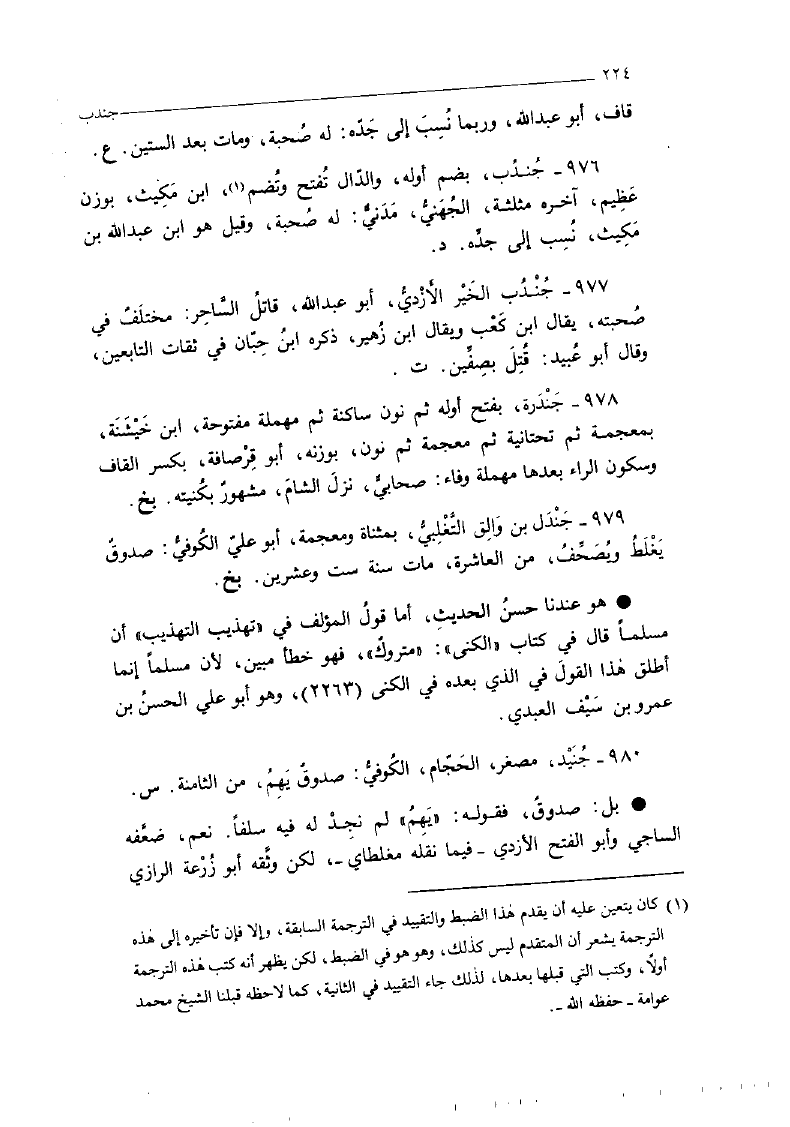 ٢٢٤
جندب
قاف، أبو عبدالله، وربما نُسِبَ إلى جَدّه: له صُحبة، ومات بعد الستين. ع.
٩٧٦ ـ جُنـدُب، بضم أوله، والدّال تُفتح وتُضم(١)، ابن مَكِيث، بوزن
عَظِيم، آخـره مثلثة، الجُهَنيُّ، مَدَنيٌّ: له صُحبة، وقيل هو ابن عبدالله بن
مَكِيث، نُسِب إلى جدِّه. د.
٩٧٧ ـ جُنْدُب الخَيْر الأَزْديُّ، أبو عبدالله، قاتلُ السَّاحِر: مختلَفٌ في
صُحبته، يقال ابن كَعْب ويقال ابن زُهير، ذكره ابنُ حِبّان في ثقات التابعين،
وقال أبو عُبيد: قُتِلَ بصِفِّين. ت .
٩٧٨ ـ جَنْدَرة، بفتح أوله ثم نون ساكنة ثم مهملة مفتوحة، ابن خَيْشَنَة،
بمعجمـة ثم تحتانية ثم معجمة ثم نون، بوزنه، أبو قِرْصافة، بكسر القاف
وسكون الراء بعدها مهملة وفاء: صحابيٌّ، نزلَ الشامَ، مشهورٌ بكُنيته. بخ.
٩٧٩ ـ جَنْدَل بن وَالِق التَّغْلِبيُّ، بمثناة ومعجمة، أبو عليّ الكُوفيُّ: صدوقٌ
يَغْلَطُ ويُصَحِّفُ، من العاشرة، مات سنة ست وعشرين. بخ.
● هو عندنا حسنُ الحديثِ، أما قولُ المؤلف في «تهذيب التهذيب» أن
مسلمـاً قال في كتاب «الكنى»: «متروكٌ»، فهو خطأ مبين، لأن مسلماً إنما
أطلق هٰذا القولَ في الذي بعده في الكنى (٢٢٦٣)، وهو أبو علي الحسنُ بن
عمرو بن سَيْف العبدي.
٩٨٠ ـ جُنَيْد، مصغر، الحَجّام، الكُوفيُّ: صدوقٌ يَهِمُ، من الثامنة. س.
● بل: صدوقٌ، فقـولـه: «يَهِمُ» لم نجِـدْ له فيه سلفاً. نعم، ضعَّفه
الساجي وأبو الفتح الأزدي ـ فيما نقله مغلطاي ـ، لكن وثَّقه أبو زُرْعة الرازي
(١) كان يتعين عليه أن يقدم هٰذا الضبط والتقييد في الترجمة السابقة، وإلا فإن تأخيره إلى هٰذه
الترجمة يشعر أن المتقدم ليس كذلك، وهو هو في الضبط، لكن يظهر أنه كتب هٰذه الترجمة
أولًا، وكتب التي قبلها بعدها، لذلك جاء التقييد في الثانية، كما لاحظه قبلنا الشيخ محمد
عوامة ـ حفظه الله ـ.